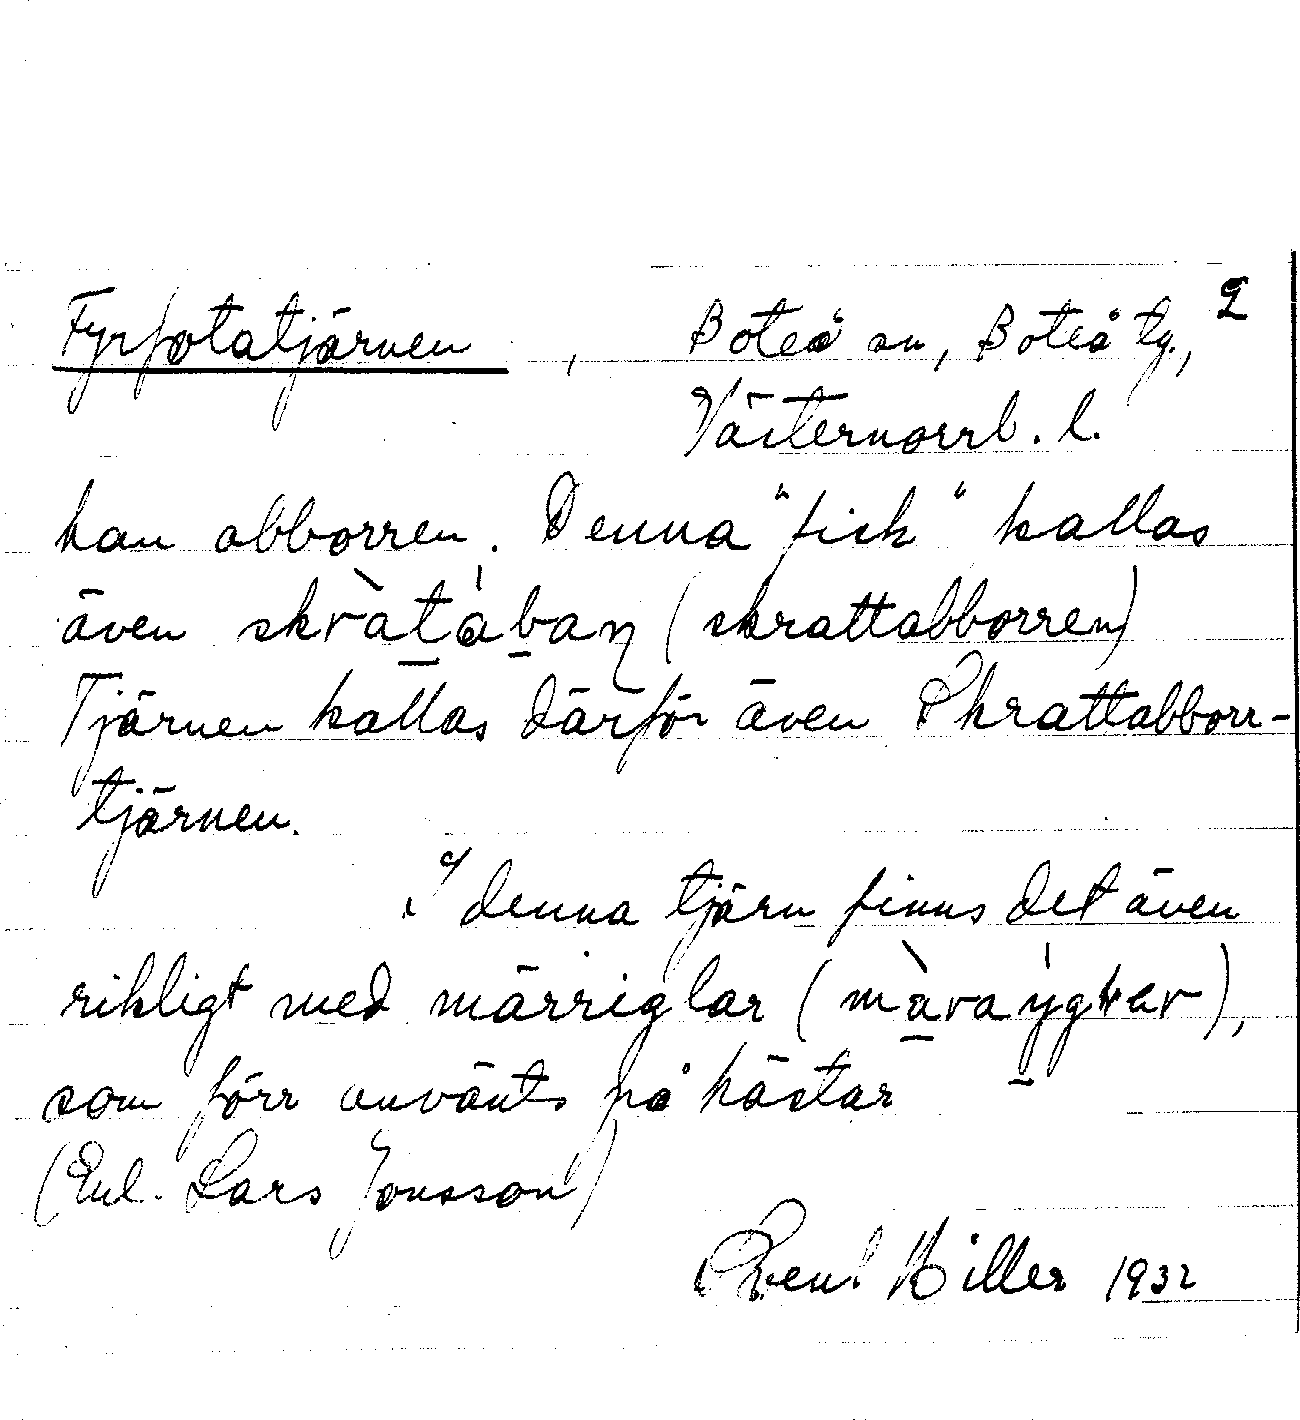 Fyrfotatjärnen, Boteå sn, Boteå tg., 2
Västernorrl. l.
han abborren. Denna "fisk" kallas
även skràtába̱ṉ (skrattabborren)
Tjärnen kallas därför även Skrattabborr-
tjärnen.
I denna tjärn finns det även
rikligt med märriglar (
som förr använts på hästar
(Enl. Lars Jonsson)
Miller 1932